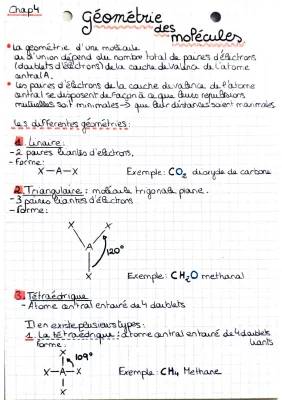 Chap4
géométrie
des
molécules
La géométrie d'une molécule
ou d'union dépend du nombre total de paires d'électrons
(doublets d'électrons) de la couche de valence de l'atome
central A.
Les paires d'électrons de la couche de valence de l'atome
central se disposent de façon à ce que leurs répulsions
mutuelles soit minimales → que leur distances soient maximales
Les différentes géométries:
1. Linaire:
- 2 paires liantes d'électrons.
- forme:
X-A-X
Exemple: CO2 dioxyde de carbone
2. Triangulaire: molécule trigonale plane.
- 3 paires liantes d'électrons
- forme:
X X
A
120°
X
Exemple: CH2O methanal
3. Tétraédrique
- Atome central entouré de 4 doublets
Il en existe plusieurs types:
1. La tétraédrique: atome central entouré de 4 doublets
liants
forme:
X
109°
X-A-X
X
Exemple: CH4 Methane